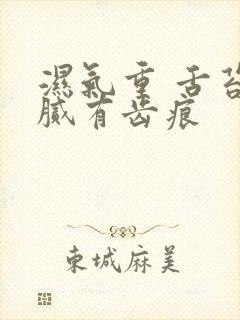 濕氣重 舌苔
膩有齒痕
東城麻美